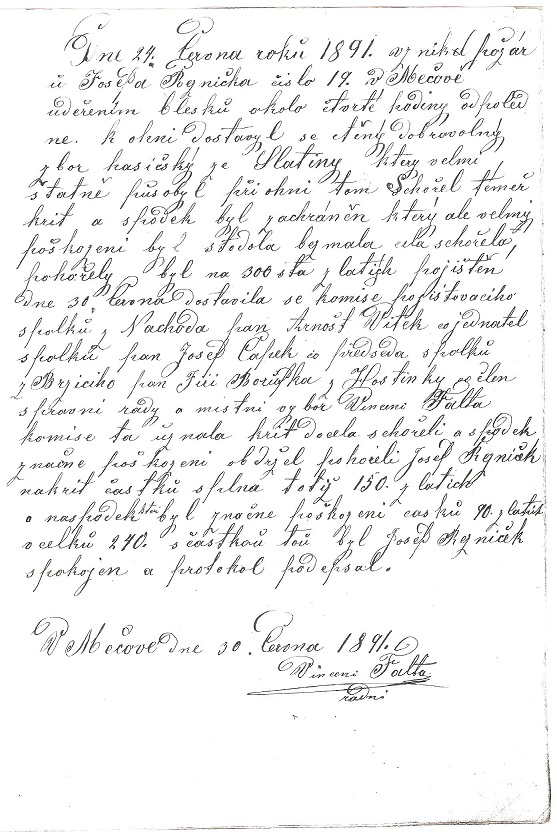 Dne 24. Června roku 1891. vznikl požár
u Josefa Řezníčka číslo 19. v Mečově
uděřením blesku okolo čtvrté hodiny odpoled
ne. k ohni dostavyl se ctěný dobrovolný
zbor hasičský ze Slatiny který velmi
statně pusobyl při ohni tom Schořel téměř
krit a spodek byl zachráněn který ale velmy
poškozeni byl stodola bymala cela schořela,
pohořely byl na 300 sta zlatych pojištěn
dne 30. Června dostavila se komise pojistovacího
spolků z Nachoda pan Arnošt Vítek co jednatel
spolků pan Josef Čapek co předseda spolků
z Brzicího pan Jiří Boruvka z Hostinky co člen
spravní rady a místní vybor Vincenc Falta
komise ta uznala krit docela schořeli a spodek
značne poškozeni obdržel pohořeli Josef Řezníček
nakrit častků splna totiž 150. zlatich
a naspodek byl značne poškozeni časků 90. zlatich
vcelků 240. sčastkou tou byl Josef Řezníček
spokojen a protokol podepsal.
V Mečově dne 30. Června 1891.
Vincenc Falta
radní